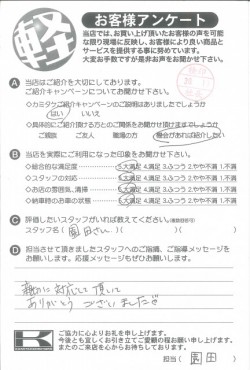 軽
お客様アンケート
当店では、お買い上げ頂いたお客様の声を可能
な限り現場に反映し、お客様により良い商品と
サービスを提供する事に努めています。
大変お手数ですが是非お声をお聞かせ下さい。
A 当店はご紹介を大切にしております。
ご紹介キャンペーンについてお聞かせ下さい。
◇カミタケご紹介キャンペーンのご説明はありましたでしょうか
はい いいえ
◇具体的にご紹介頂ける方との関係をお聞かせ頂けますでしょうか
ご親族 ご友人 職場の方 機会があれば紹介したい
B 当店を実際にご利用になった印象をお聞かせ下さい。
◇総合的な満足度 5.大満足 4.満足 3.ふつう 2.やや不満 1.不満
◇スタッフの対応 5.大満足 4.満足 3.ふつう 2.やや不満 1.不満
◇お店の雰囲気、清掃 5.大満足 4.満足 3.ふつう 2.やや不満 1.不満
◇納車時のお車の状態 5.大満足 4.満足 3.ふつう 2.やや不満 1.不満
C 評価したいスタッフがいれば教えてください。(複数回答可)
スタッフ名( 園田さん )( )( )
D 担当させて頂きましたスタッフへのご指摘、ご指導メッセージを
お願いします。応援メッセージもぜひお願いします。
親切に対応して頂いて
ありがとうございました
K
ご協力に心よりお礼を申し上げます。
今後とも宜しくお引き立てご愛顧の程お願い申し上げます。
またのご来店を心からお待ちしております。
担当( 園田 )